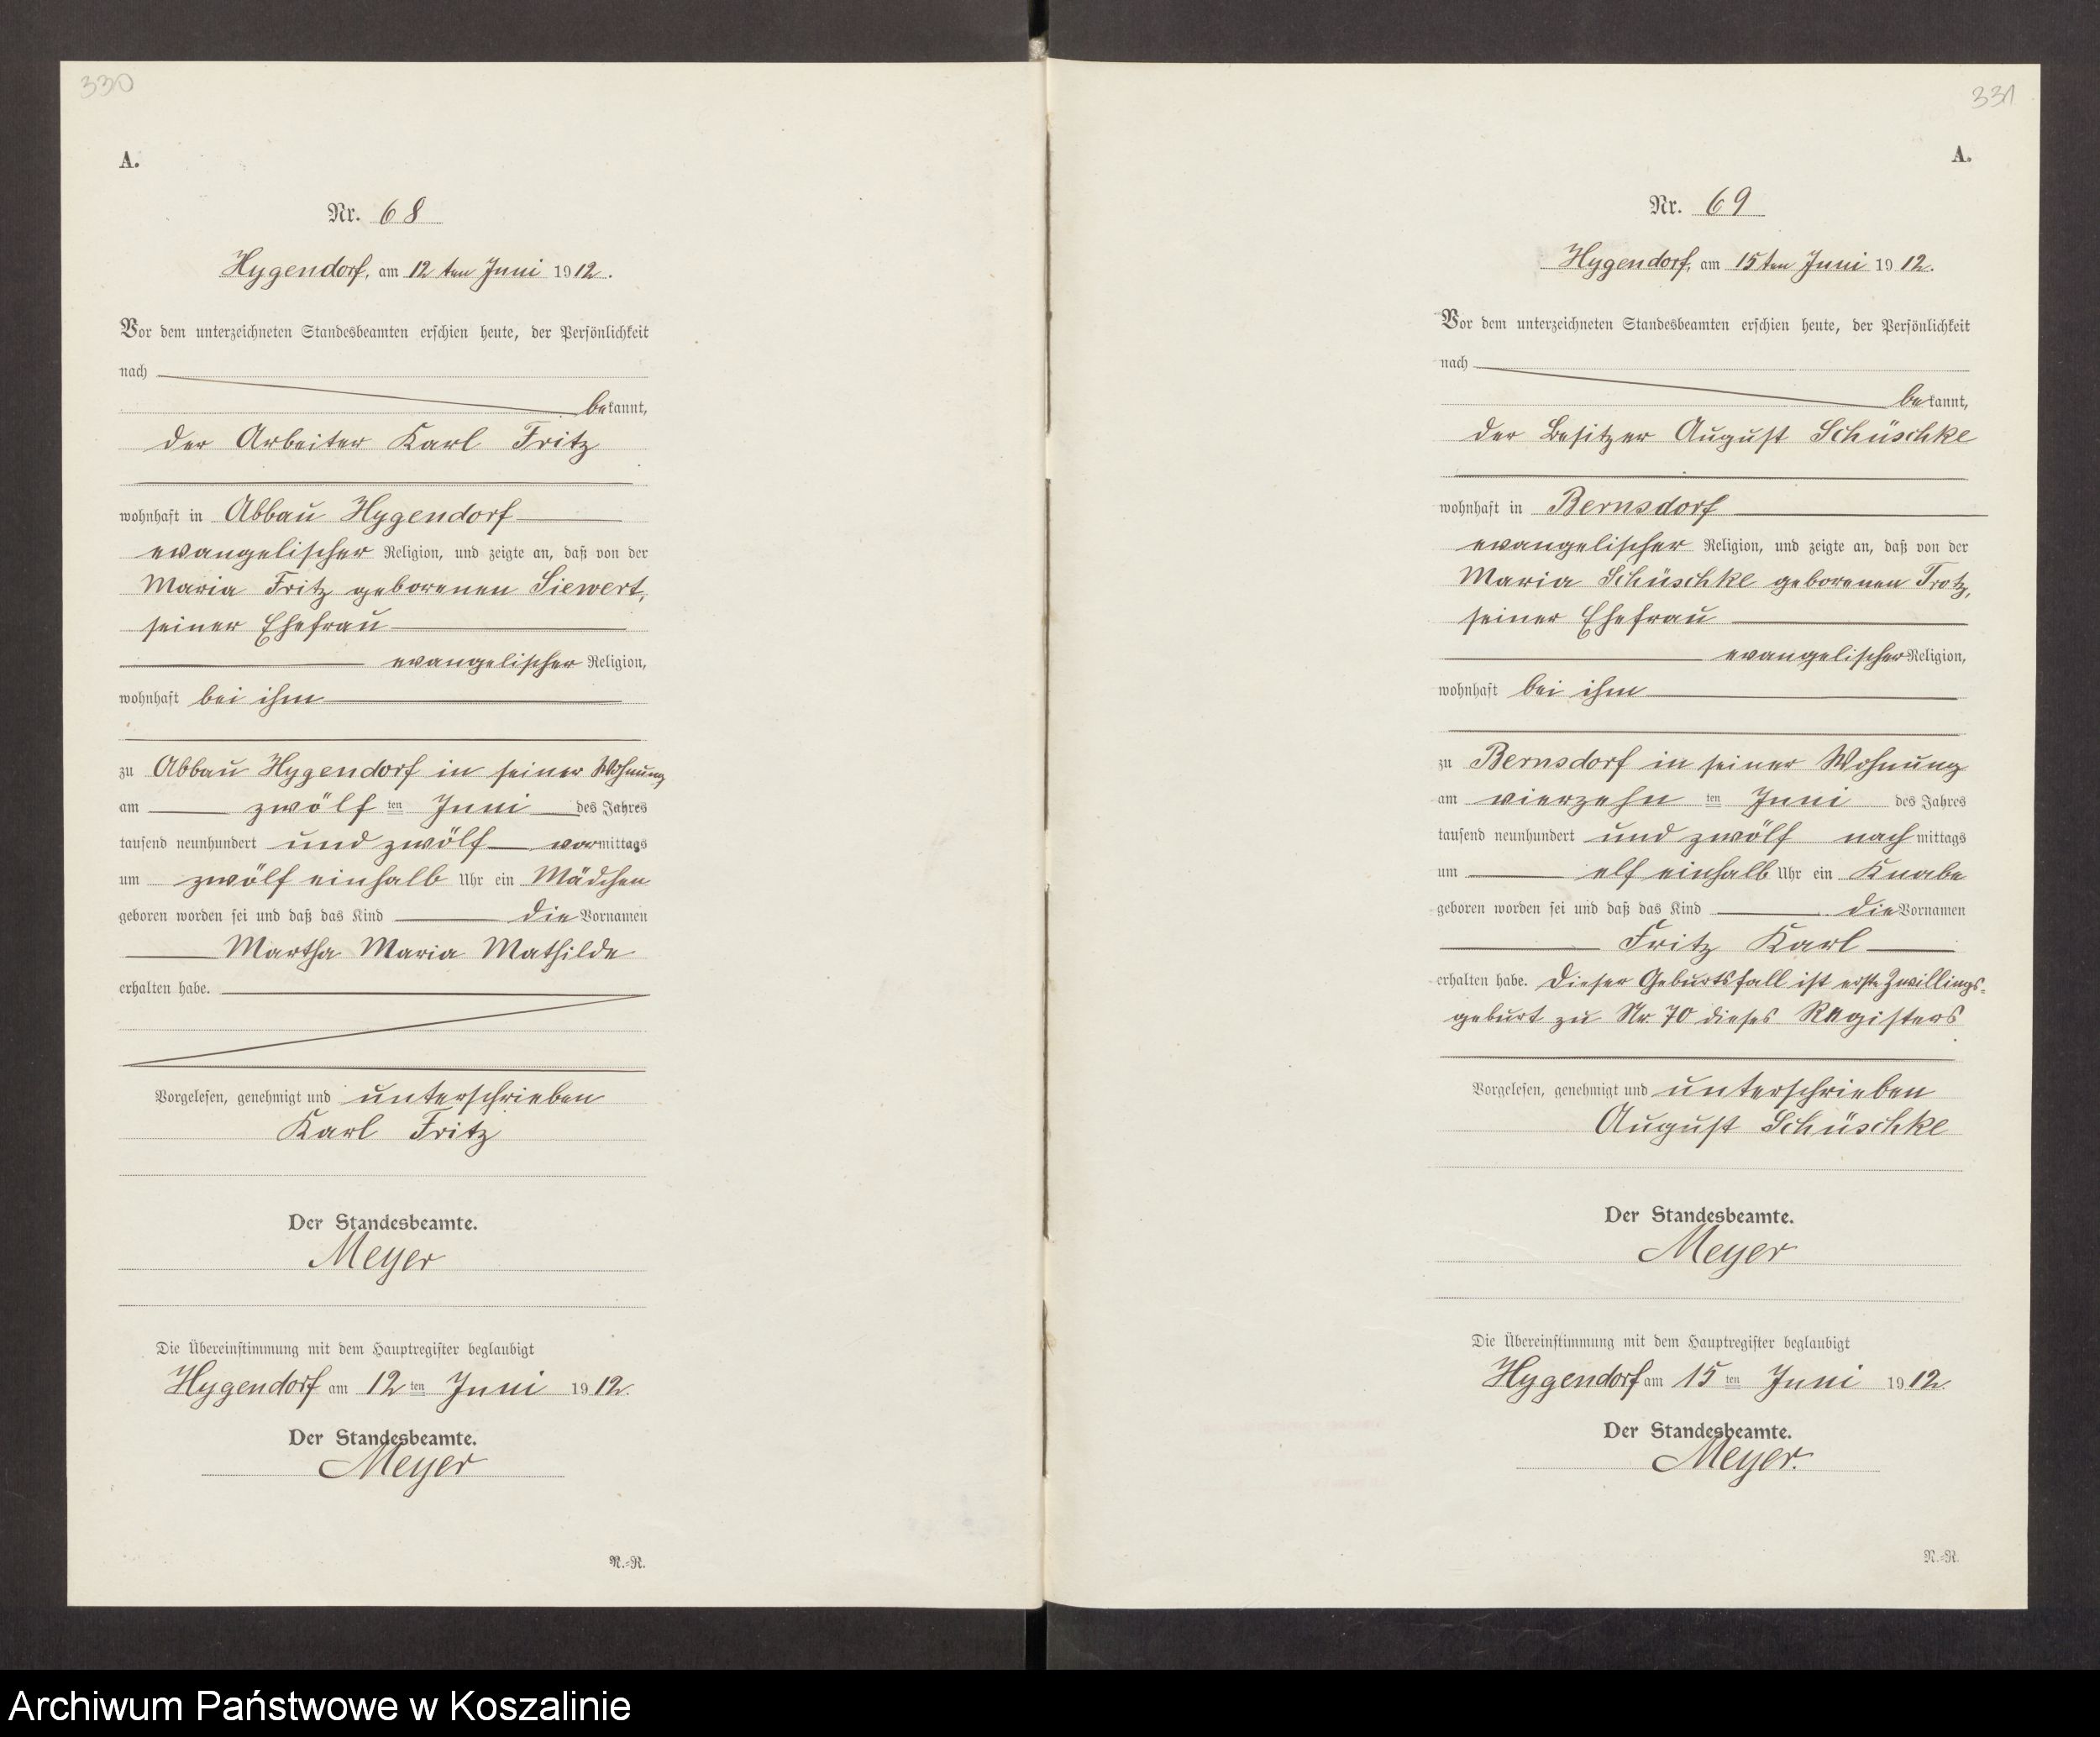 330
A.
Nr. 68
Hygendorf, am 12ten Juni 1912.
Vor dem unterzeichneten Standesbeamten erschien heute, der Persönlichkeit
nach
bekannt,
der Arbeiter Karl Fritz
wohnhaft in Abbau Hygendorf
evangelischer Religion, und zeigte an, daß von der
Maria Fritz geborenen Siewert,
seiner Ehefrau
evangelischer Religion,
wohnhaft bei ihm
zu Abbau Hygendorf in seiner Wohnung
am zwölf ten Juni des Jahres
tausend neunhundert und zwölf vormittags
um zwölf einhalb Uhr ein Mädchen
geboren worden sei und daß das Kind die Vornamen
Martha Maria Mathilde
erhalten habe.
Vorgelesen, genehmigt und unterschrieben
Karl Fritz
Der Standesbeamte.
Meyer
Die Übereinstimmung mit dem Hauptregister beglaubigt
Hygendorf am 12 ten Juni 1912.
Der Standesbeamte.
Meyer
N.-R.
331
A.
Nr. 69
Hygendorf, am 15ten Juni 1912.
Vor dem unterzeichneten Standesbeamten erschien heute, der Persönlichkeit
nach
bekannt,
der Besitzer August Schüschke
wohnhaft in Bernsdorf
evangelischer Religion, und zeigte an, daß von der
Maria Schüschke geborenen Trotz,
seiner Ehefrau
evangelischer Religion,
wohnhaft bei ihm
zu Bernsdorf in seiner Wohnung
am vierzehn ten Juni des Jahres
tausend neunhundert und zwölf nachmittags
um elf einhalb Uhr ein Knabe
geboren worden sei und daß das Kind die Vornamen
Fritz Karl
erhalten habe. Dieser Geburtsfall ist erste Zwillings-
geburt zu Nr. 70 dieses Registers
Vorgelesen, genehmigt und unterschrieben
August Schüschke
Der Standesbeamte.
Meyer
Die Übereinstimmung mit dem Hauptregister beglaubigt
Hygendorf am 15 ten Juni 1912.
Der Standesbeamte.
Meyer.
N.-R.
Archiwum Państwowe w Koszalinie